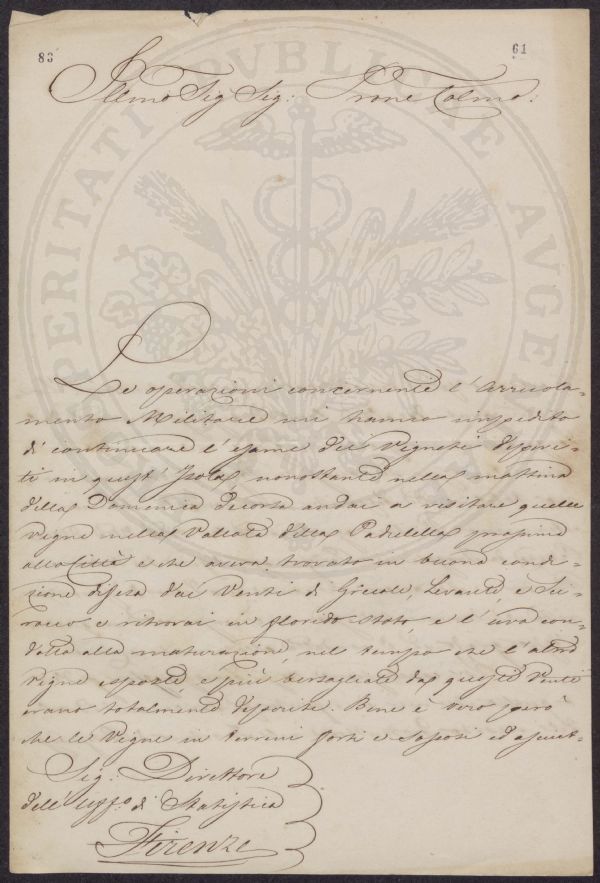 83 61
Illmo Sig Sig: Prone Colmo:
Le operazioni concernente l'Arruola-
mento Militare mi hanno impedito
di continuare l'esame dei Vigneti desperi-
ti in quest' Isola, nonostante nella mattina
della Domenica decorsa andai a visitare quelle
Vigne nella Vallata della Padulella prossima
alla Città e che aveva trovato in buona condi-
zione difesa dai Venti di Grecale, Levante, e Sci-
rocco e ritrovai in florido stato, e l'uva con-
dotta alla maturazione, nel tempo che l'altre
Vigne esposte e più bersagliate da questi Venti
erano totalmente desperite. Bene è vero però
che le Vigne in terreni forti e sassosi ed asciut-
Sig: Direttore
dell' Uffo. di Statistica
Firenze
PERITATI PVBLICAE AVGE